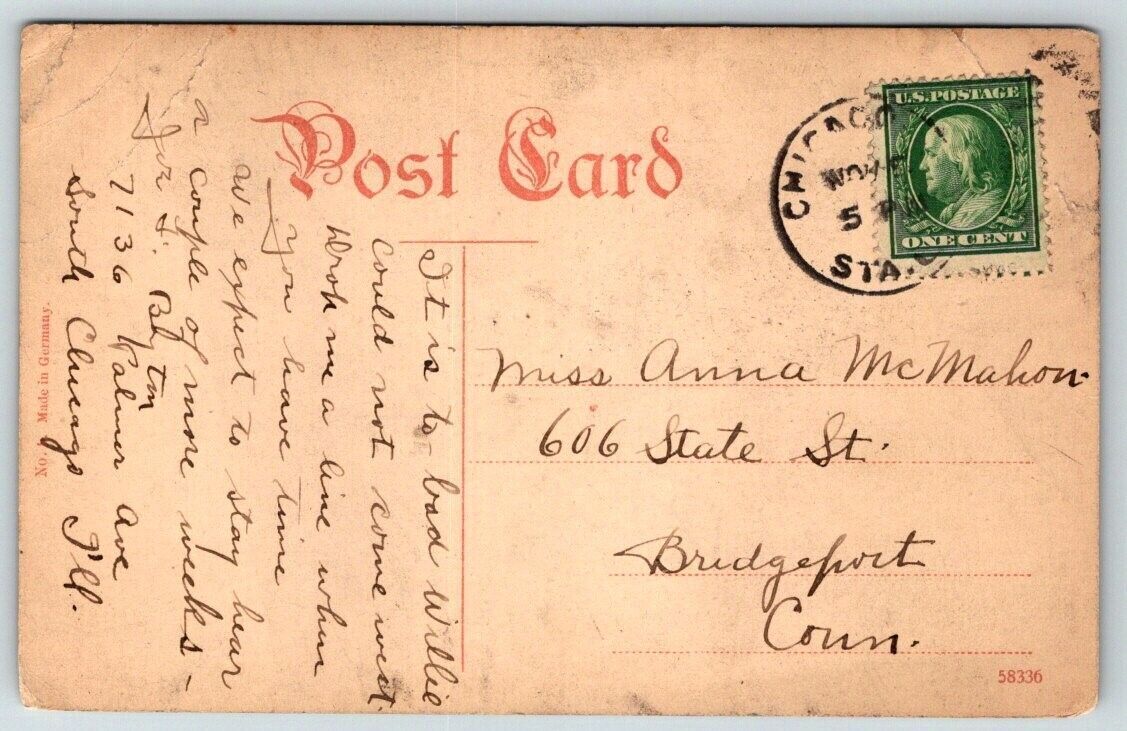 Post Card
U.S. POSTAGE
ONE CENT
CHICAGO
NOV
5
STA.
It is to bad Willie
could not come west.
Drop me a line when
you have time
We expect to stay hear
a couple of more weeks -
7136 Palmer Ave
South Chicago Ill.
Miss Anna McMahon
606 State St.
Bridgeport
Conn.
No. Made in Germany.
58336